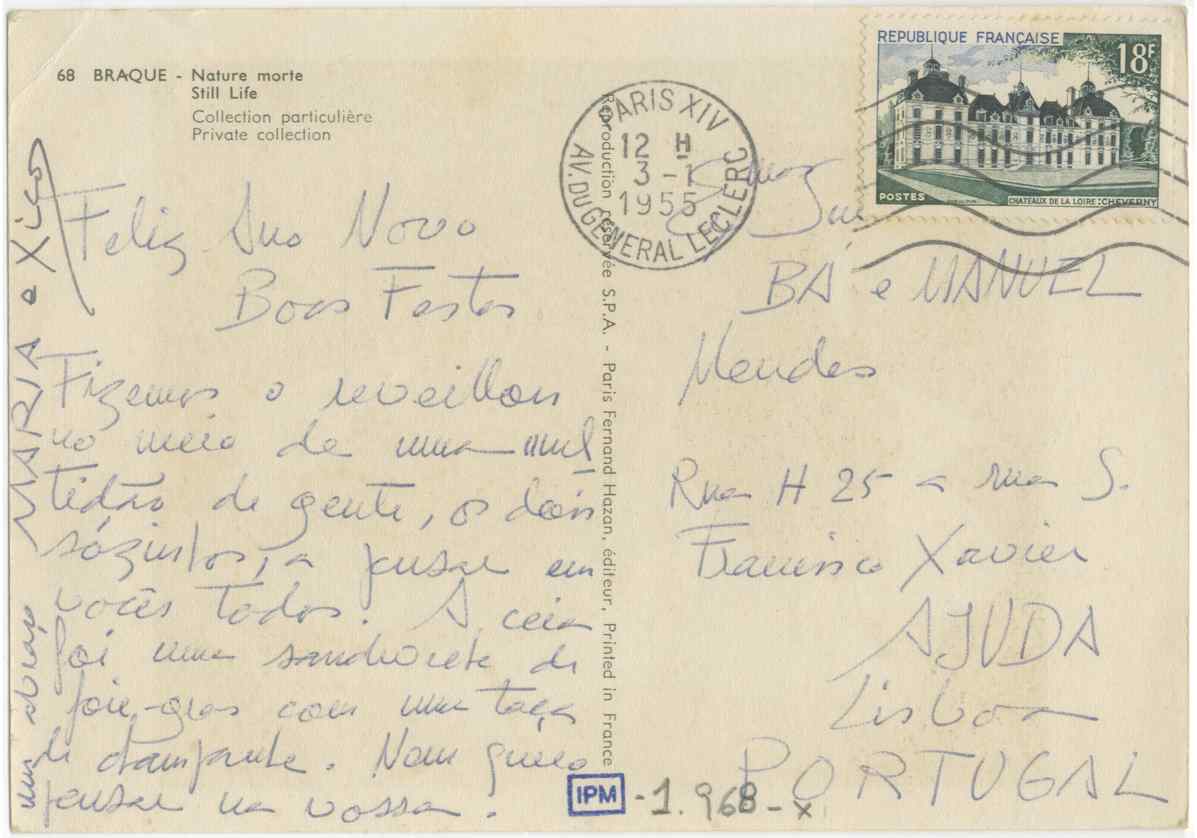 68 BRAQUE - Nature morte
Still Life
Collection particulière
Private collection
Feliz Ano Novo
Boas Festas
Fizemos o reveillon
no meio de uma mul
tidão de gente, os dois
sózinhos, a pensar em
vocês todos. A ceia
foi uma sandwiche de
foie-gras com uma taça
de champanhe. Nem quero
pensar na vossa.
um abraço
MARIA e Xico
Reproduction réservée S.P.A. - Paris Fernand Hazan, éditeur, Printed in France
PARIS XIV
12 H
3 - 1
1955
AV. DU GENERAL LECLERC
REPUBLIQUE FRANÇAISE
18F
POSTES
CHATEAUX DE LA LOIRE : CHEVERNY
BÁ e MANUEL
Mendes
Rua H 25 a rua S.
Francisco Xavier
AJUDA
Lisboa
PORTUGAL
IPM - 1.968 - x